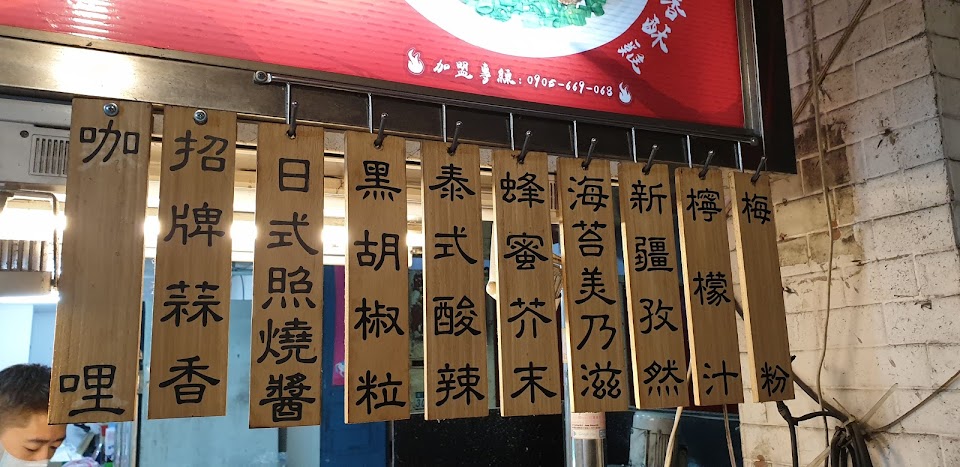 香酥雞
加盟專線：0905-669-068
咖哩
招牌蒜香
日式照燒醬
黑胡椒粒
泰式酸辣
蜂蜜芥末
海苔美乃滋
新疆孜然
檸檬汁
梅粉